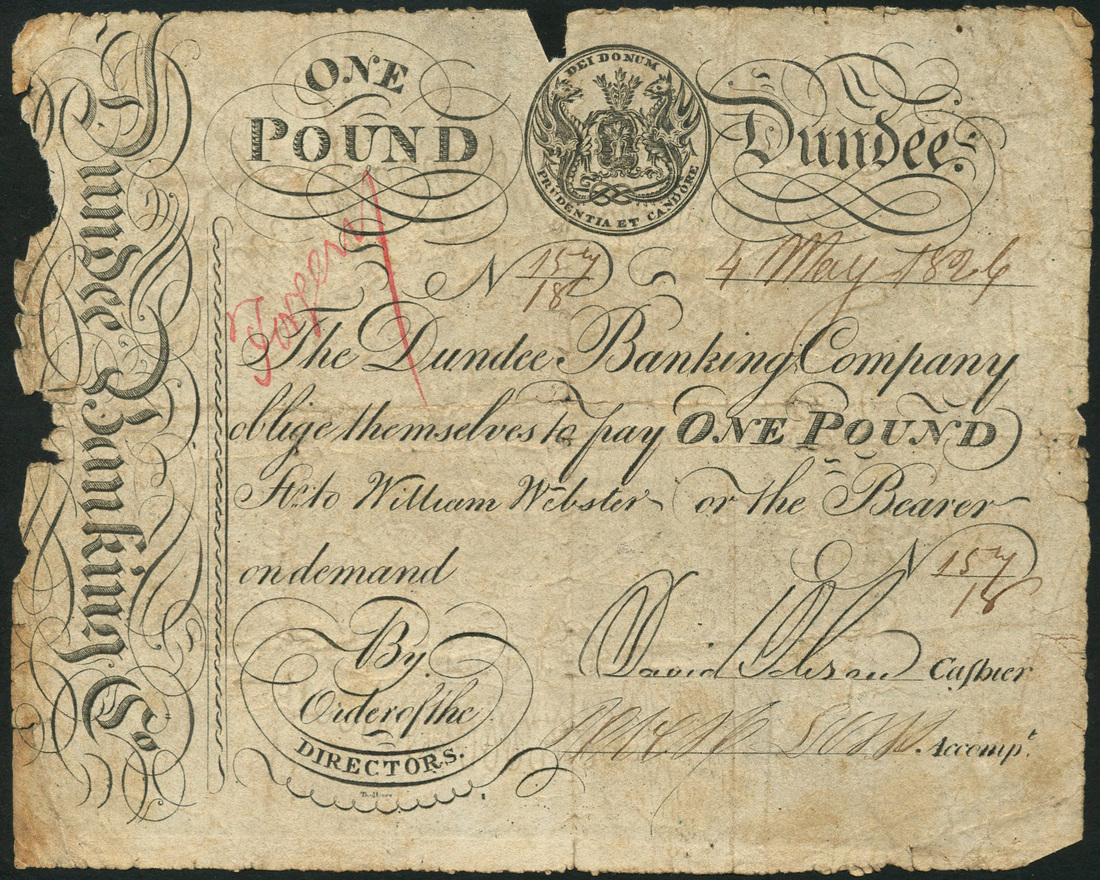 Dundee Banking Co
ONE
POUND
DEI DONUM
PRUDENTIA ET CANDORE
Dundee
Forgery
No 157/18
4 May 1826
The Dundee Banking Company
oblige themselves to pay ONE POUND
Str. to William Webster or the Bearer
on demand
No 157/18
By
Order of the
DIRECTORS.
David Cashier
Accompt.